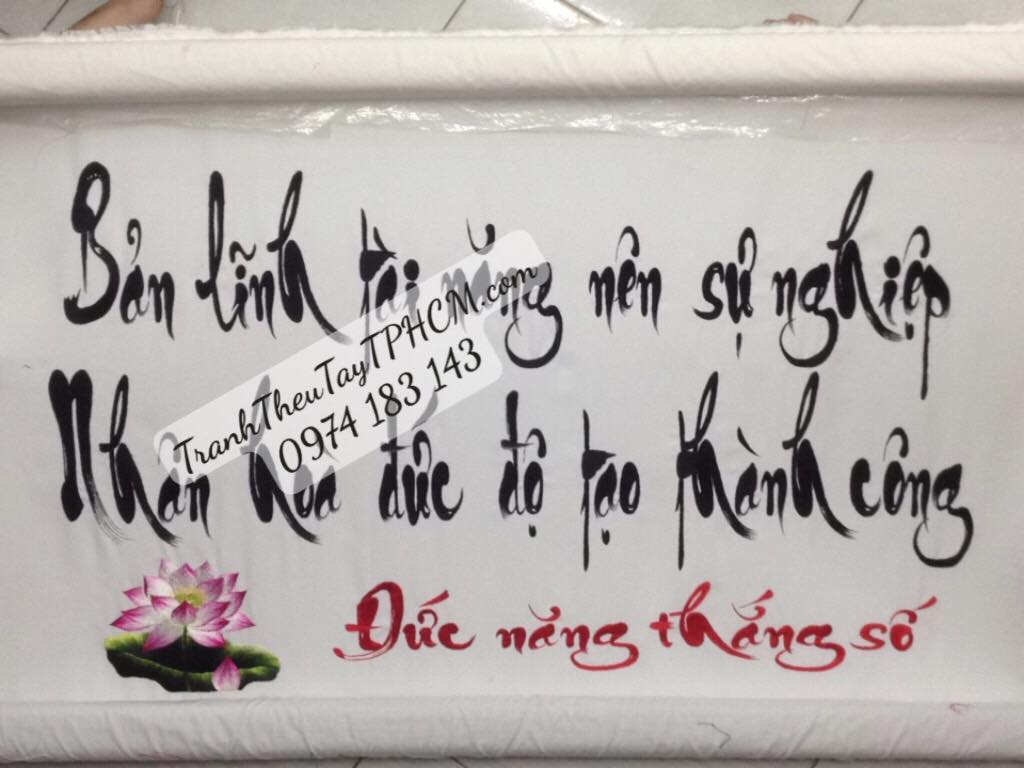 Bản lĩnh tài năng nên sự nghiệp
Nhân hòa đức độ tạo thành công
Đức năng thắng số
TranhTheuTayTPHCM.com
0974 183 143